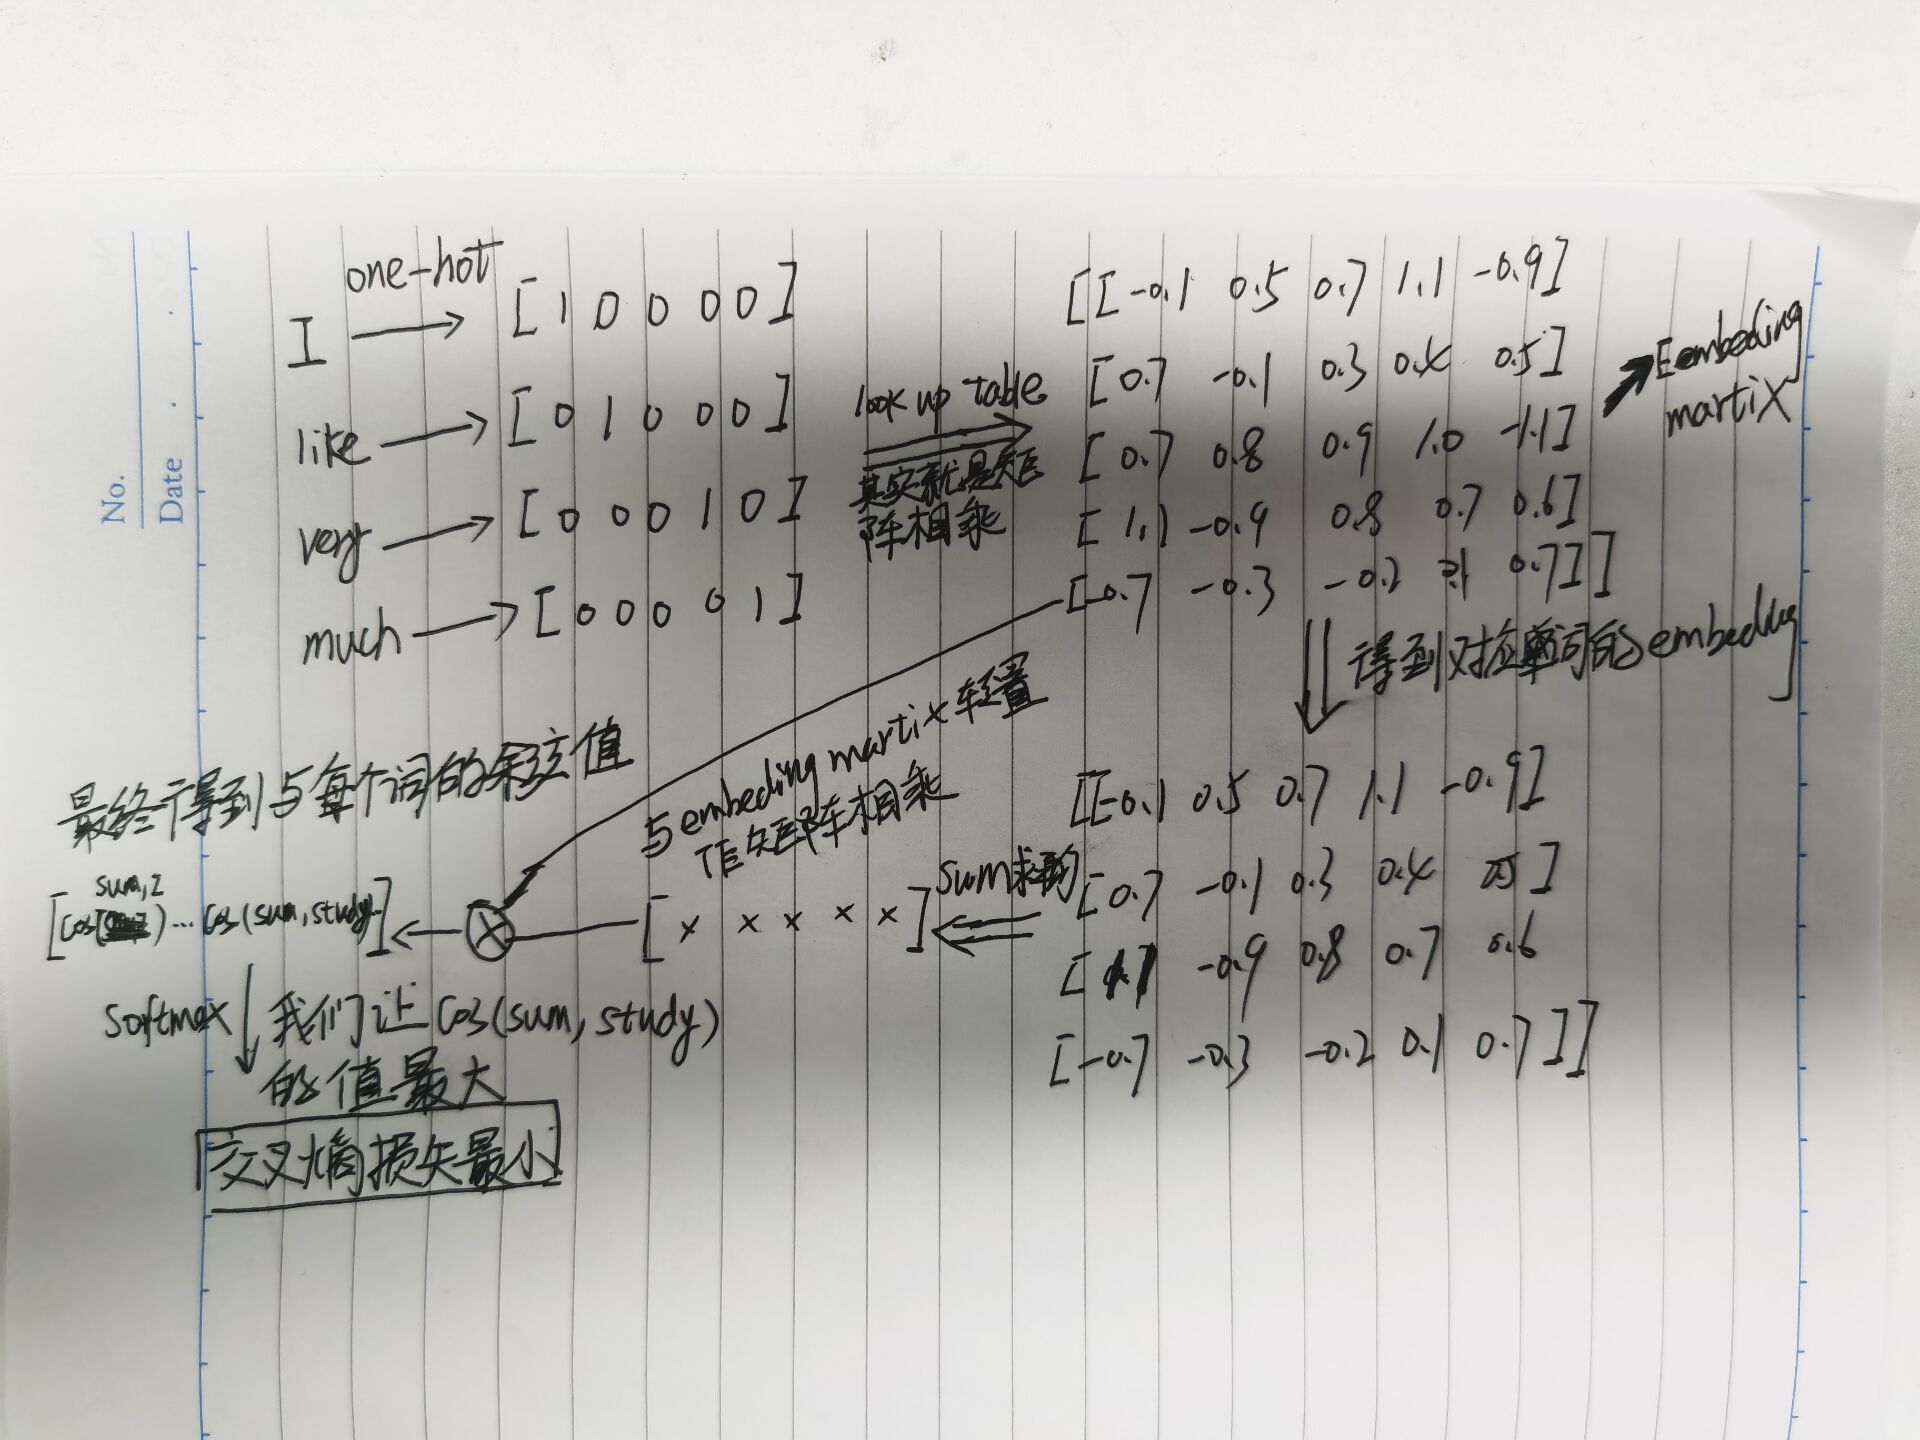 No.
Date
one-hot
I [1 0 0 0 0]
like [0 1 0 0 0]
very [0 0 0 1 0]
much [0 0 0 0 1]
look up table
其实就是矩
阵相乘
[[-0.1 0.5 0.7 1.1 -0.9]
[0.7 -0.1 0.3 0.4 0.5]
[0.7 0.8 0.9 1.0 -1.1]
[1.1 -0.9 0.8 0.7 0.6]
[-0.7 -0.3 -0.2 0.1 0.7]]
Eembeding
martix
得到对应单词的embeding
[[-0.1 0.5 0.7 1.1 -0.9]
[0.7 -0.1 0.3 0.4 0.5]
[1.1 -0.9 0.8 0.7 0.6
[-0.7 -0.3 -0.2 0.1 0.7]]
sum求和
[× × × × ×]
与embeding martix转置
作矩阵相乘
最终得到与每个词的余弦值
sum, I
[cos( )... cos(sum, study)]
softmax
我们让cos(sum, study)
的值最大
交叉熵损失最小